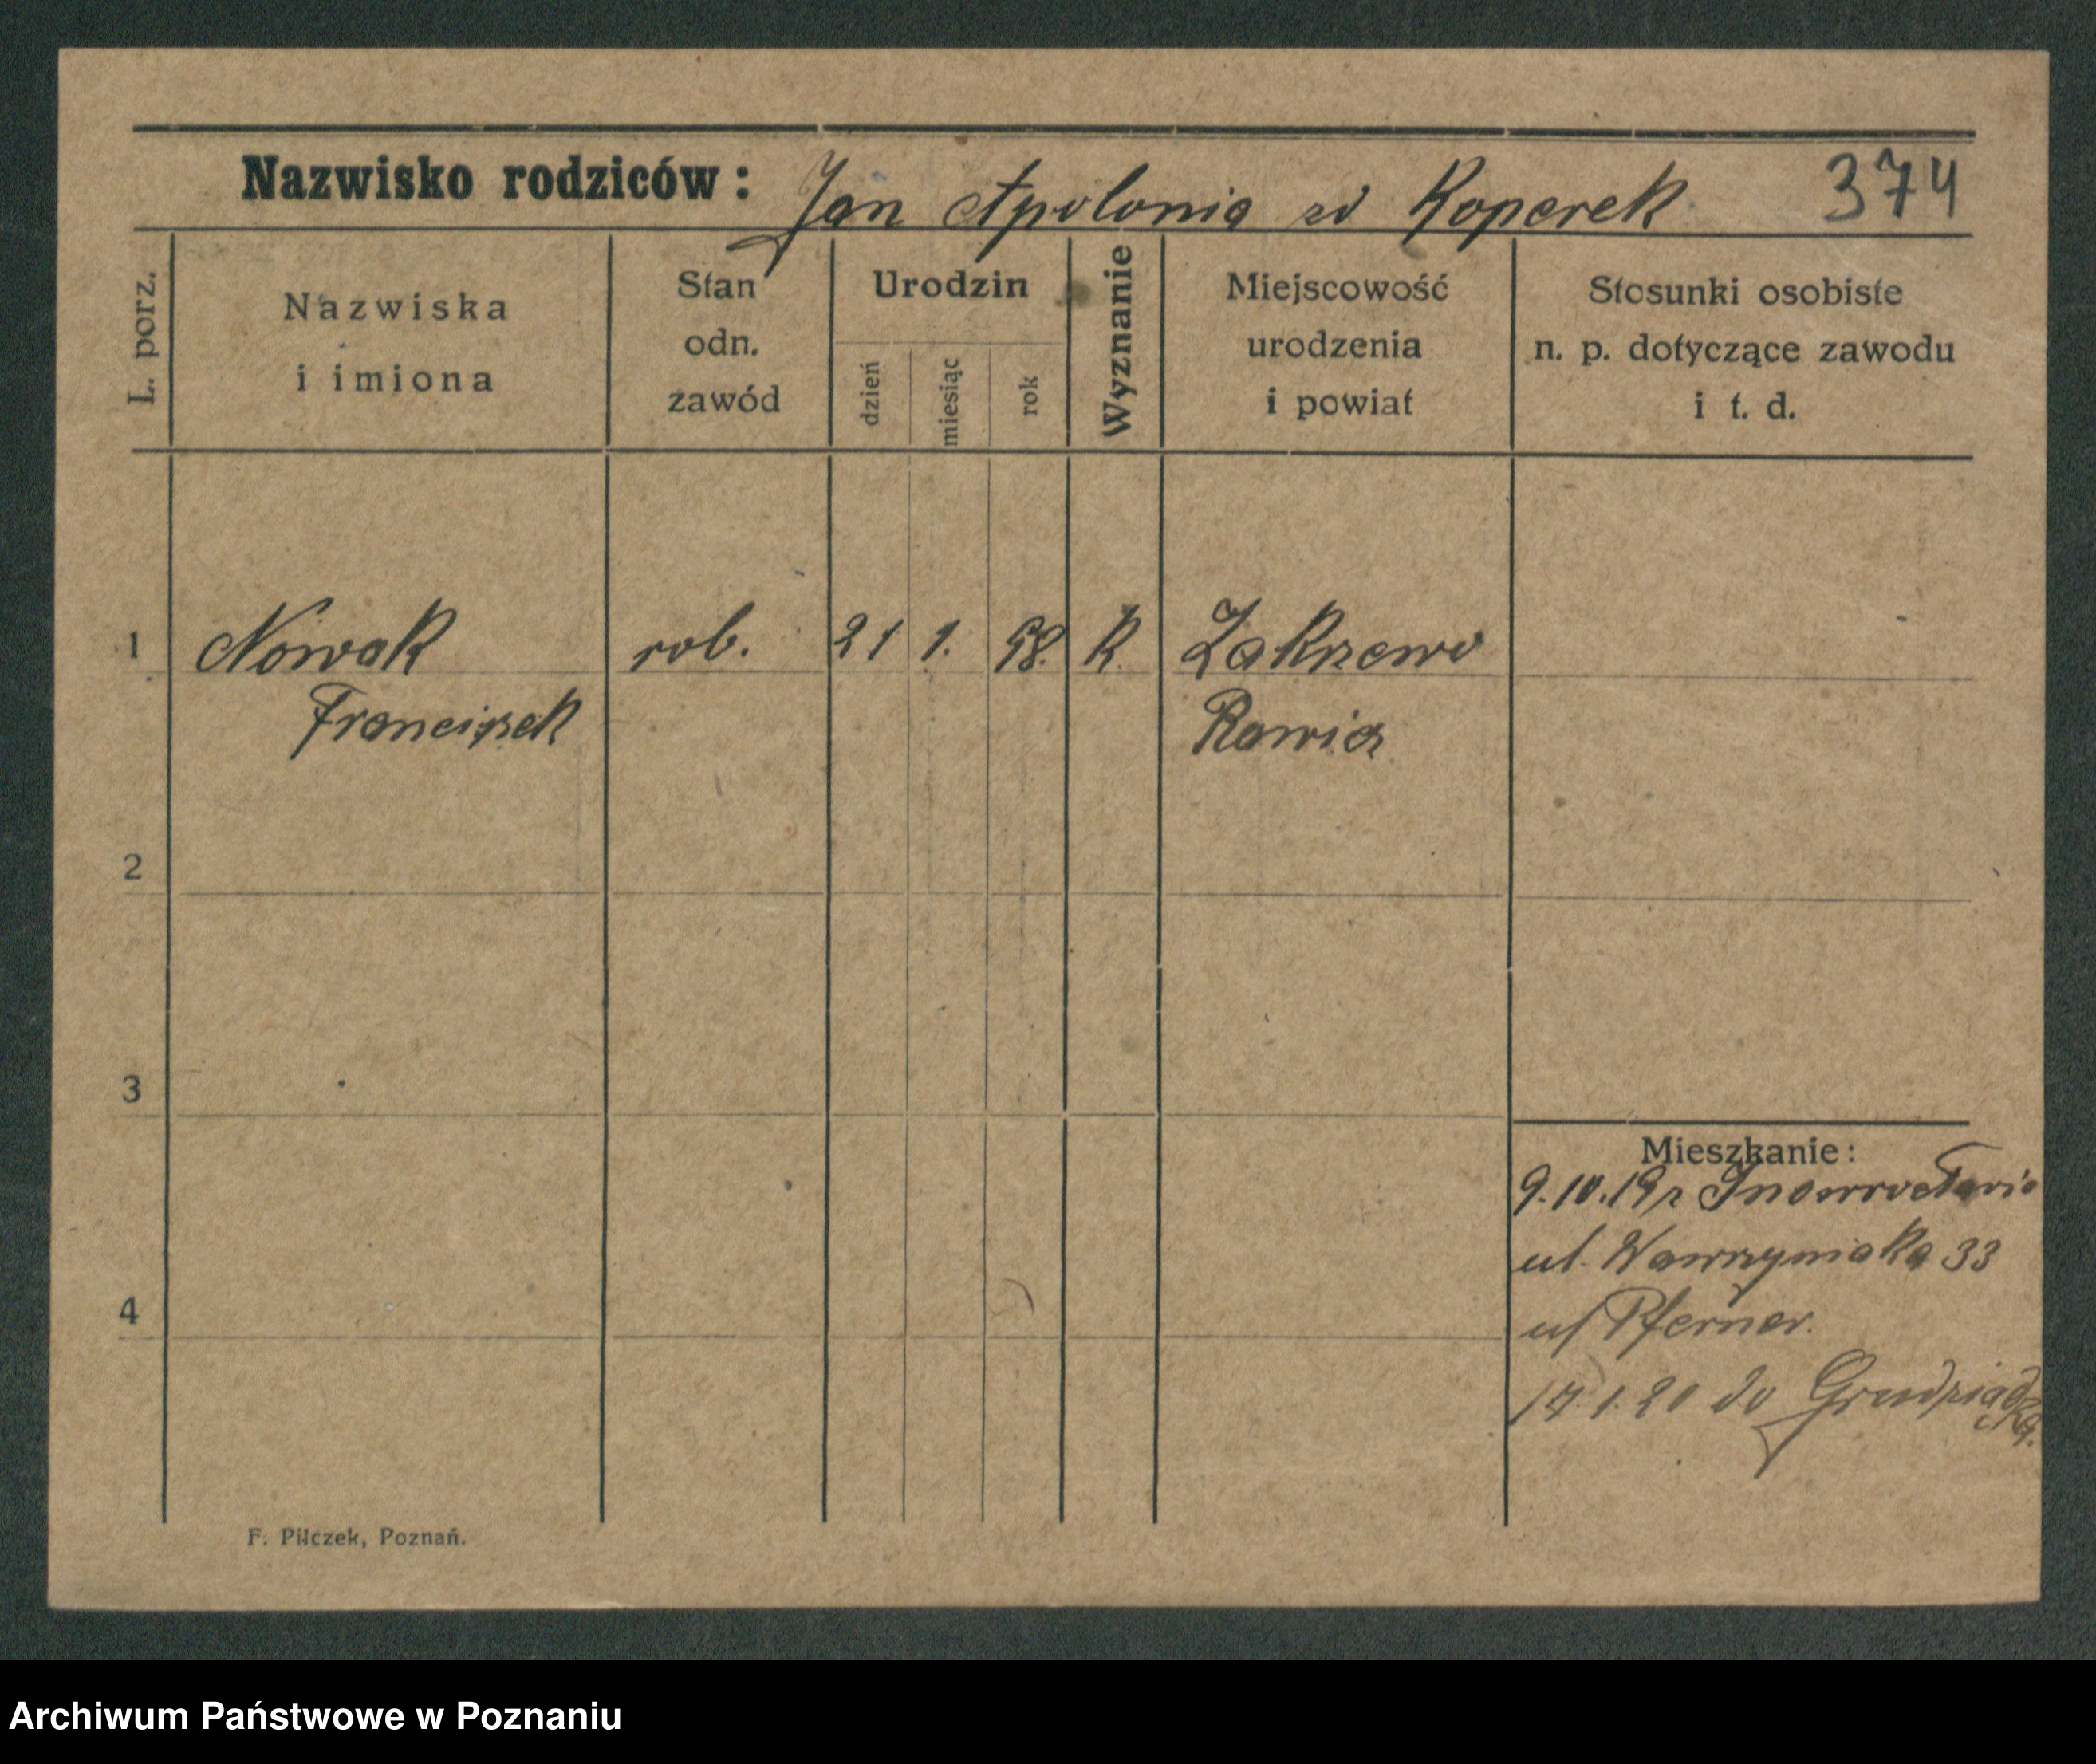 Nazwisko rodziców: Jan Apolonia zd Koperek 374
L. porz.
Nazwiska
i imiona
Stan
odn.
zawód
Urodzin
dzień
miesiąc
rok
Wyznanie
Miejscowość
urodzenia
i powiat
Stosunki osobiste
n. p. dotyczące zawodu
i t. d.
1 Nowak rob. 21 1. 98. K. Zakrzewo
Franciszek Rawicz
2
3
4
Mieszkanie:
9.10.19 z Inowrocławia
ul. Wawrzyniaka 33
u/ Pferner.
17.1.20 do Grudziądza.
F. Pilczek, Poznań.
Archiwum Państwowe w Poznaniu